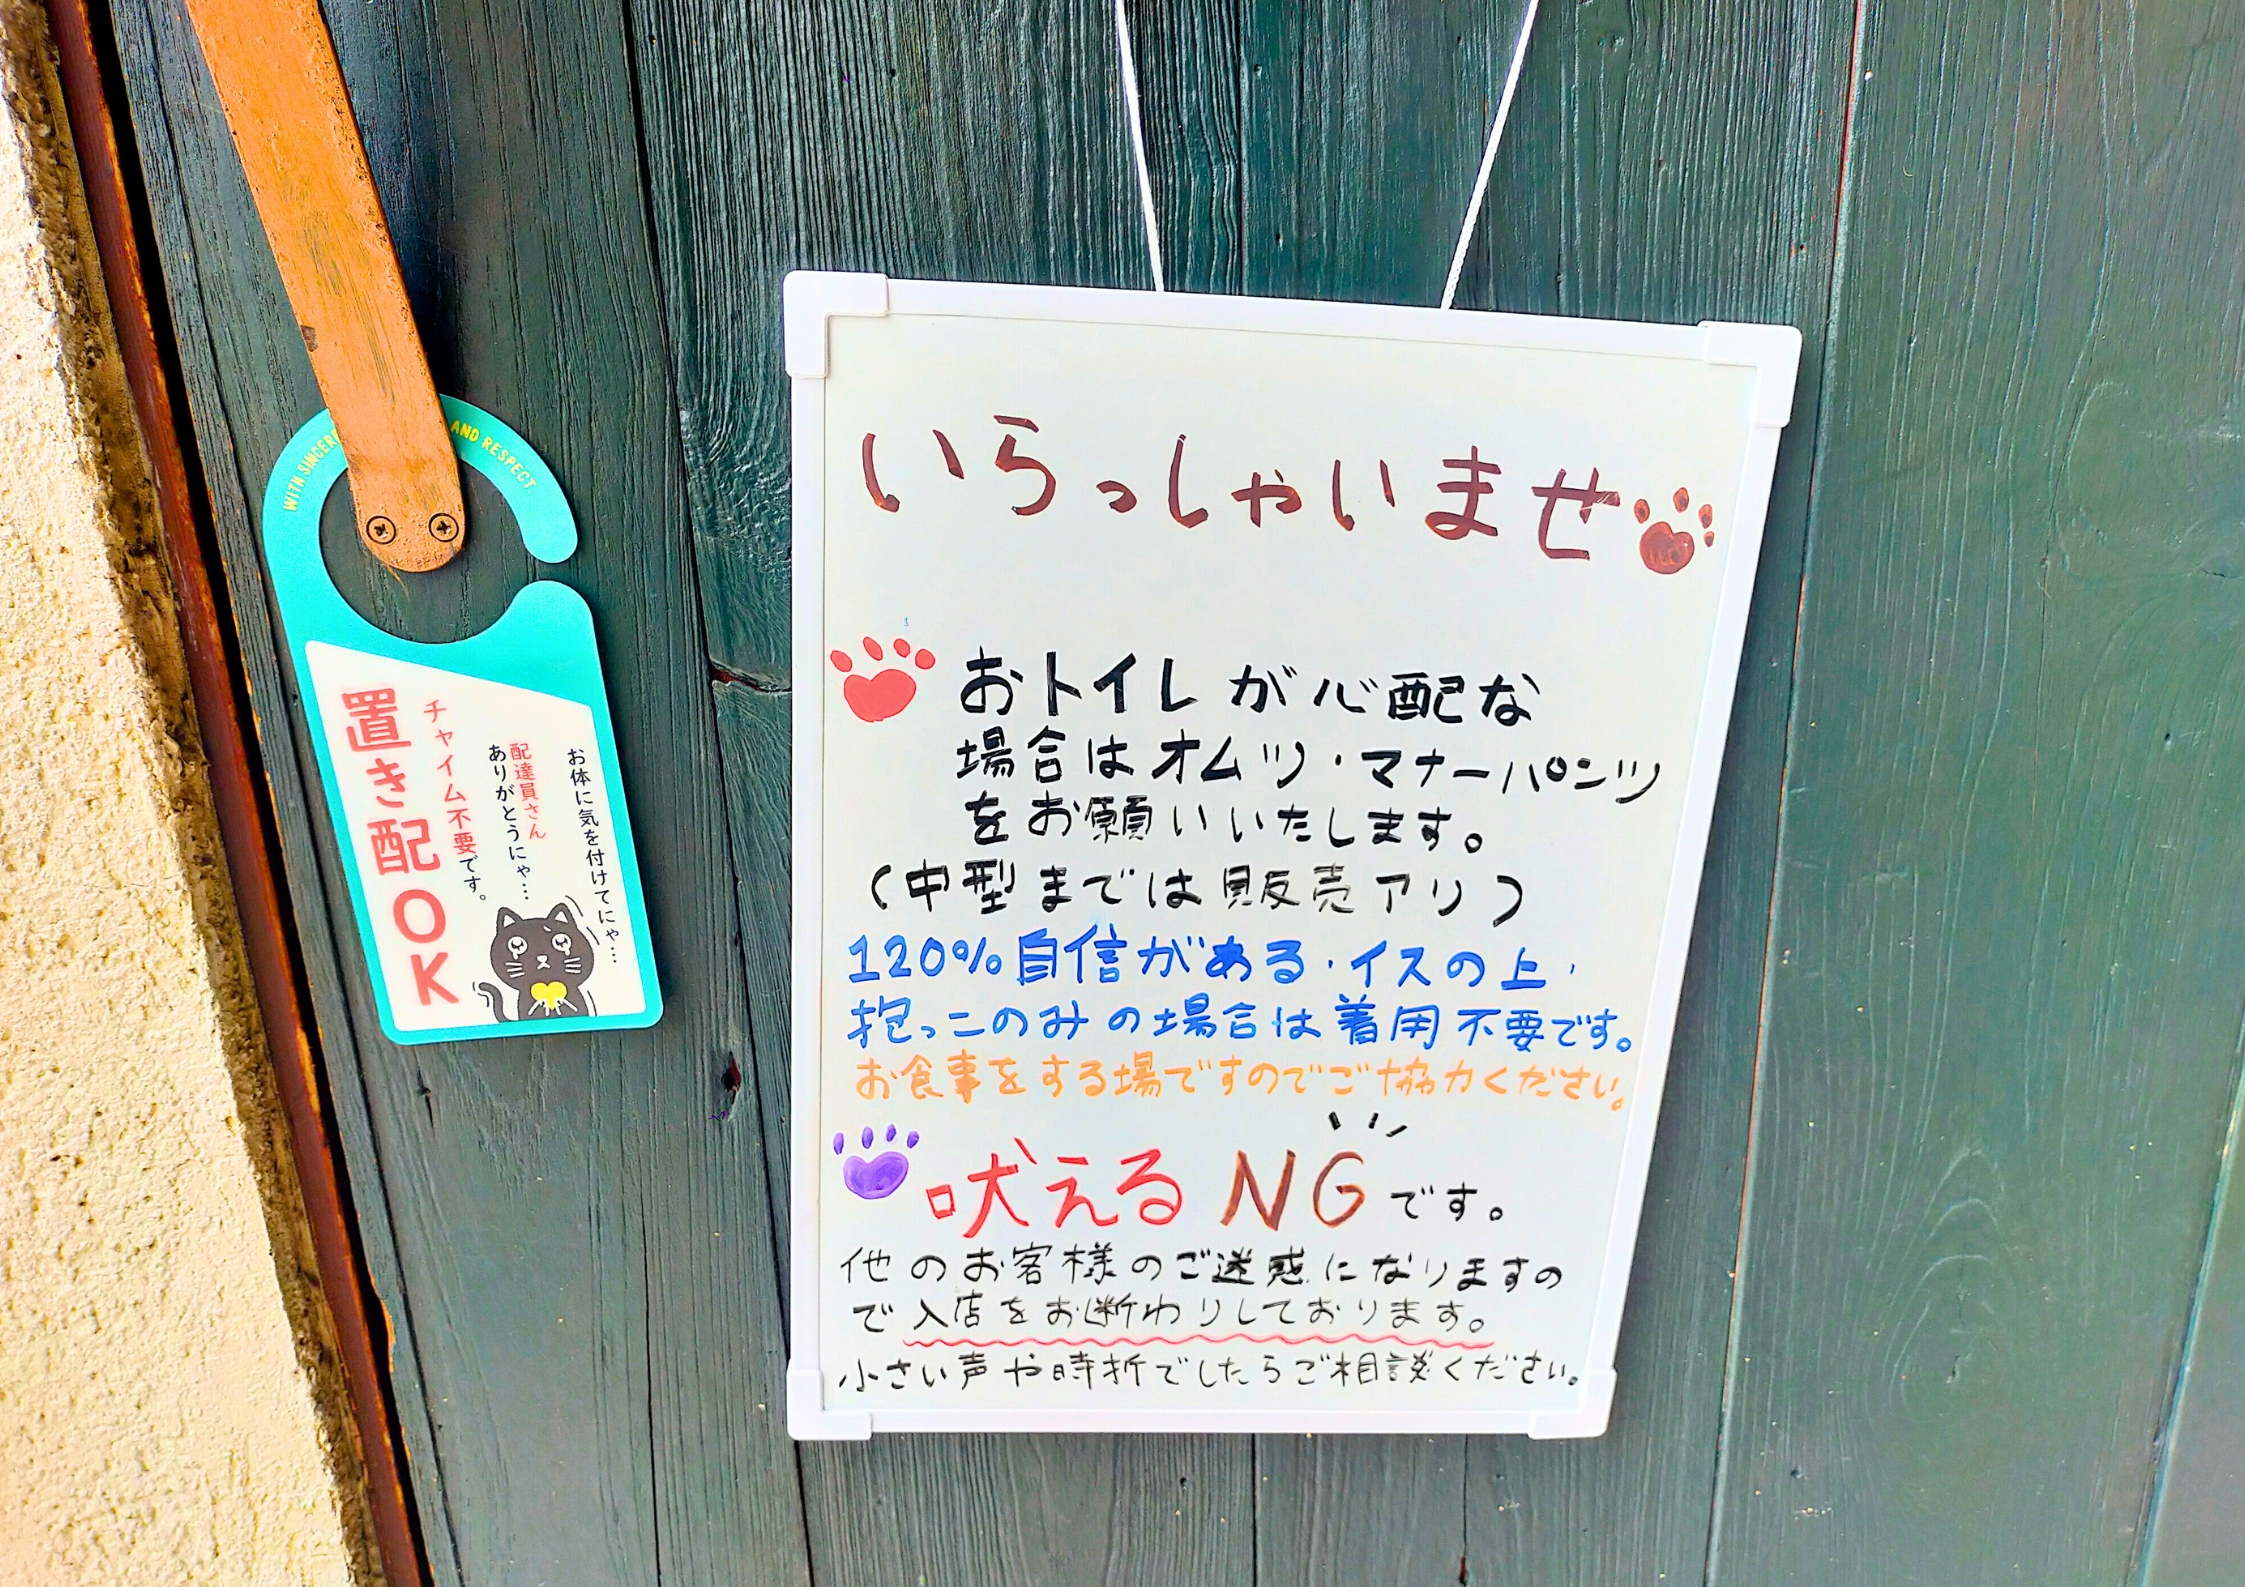 WITH SINCER
AND RESPECT.
お体に気を付けてにゃ…
配達員さん
ありがとうにゃ…
チャイム不要です。
置き配OK
いらっしゃいませ
おトイレが心配な
場合はオムツ・マナーパンツ
をお願いいたします。
(中型までは販売アリ)
120%自信がある・イスの上・
抱っこのみの場合は着用不要です。
お食事をする場ですのでご協力ください。
吠えるNGです。
他のお客様のご迷惑になりますの
で入店をお断わりしております。
小さい声や時折でしたらご相談ください。